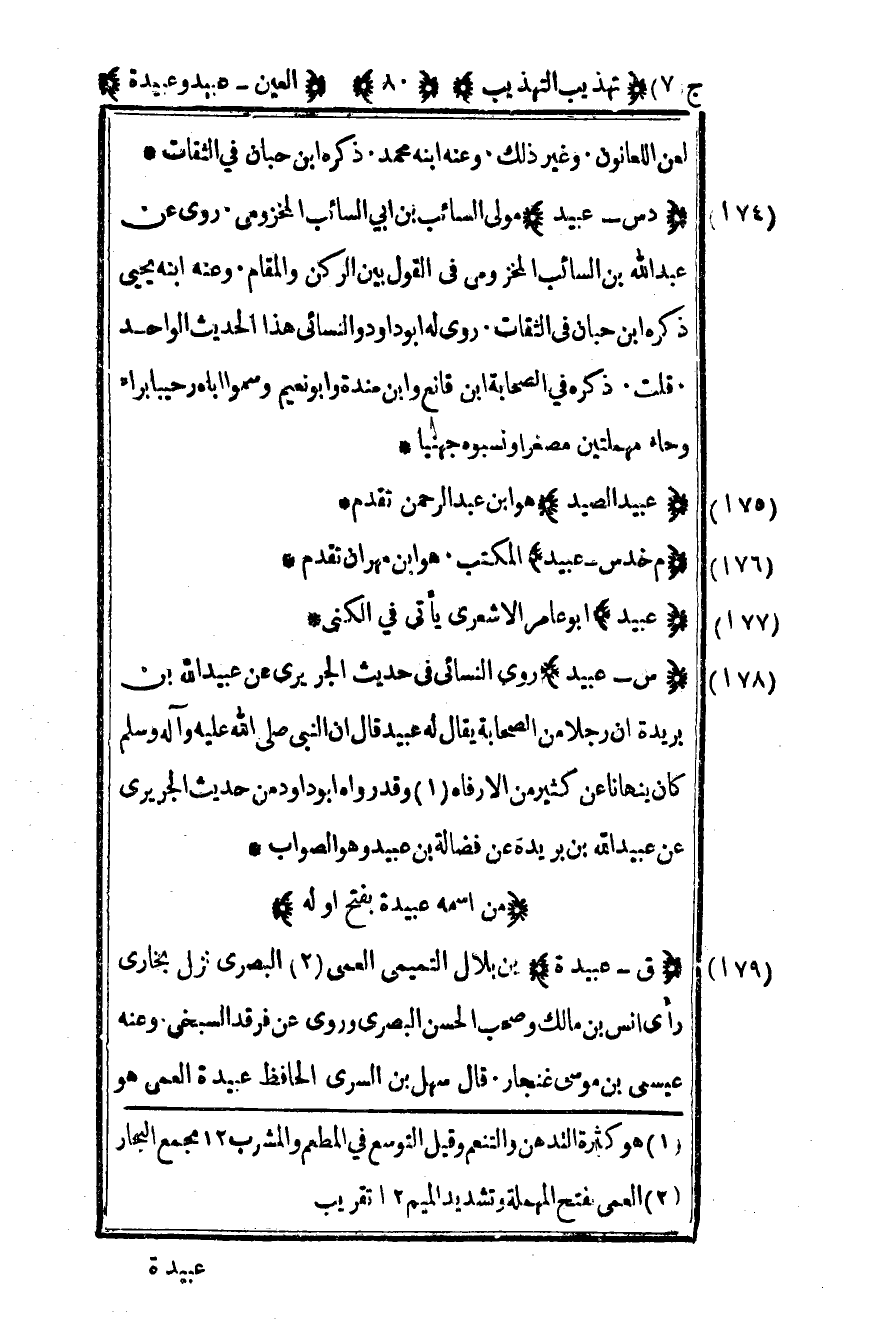 ج (٧) ﴿ تهذيب التهذيب ﴾ ﴿ ٨٠ ﴾ ﴿ العين ـ عبيد وعبيدة ﴾
لعن اللعانون ٠ وغير ذلك ٠ وعنه ابنه محمد ٠ ذكره ابن حبان في الثقات *
(١٧٤) ﴿ دس ـ عبيد ﴾ مولى السائب بن ابي السائب المخزومى ٠ روى عن
عبدالله بن السائب المخزومى فى القول بين الركن والمقام ٠ وعنه ابنه يحيى
ذكره ابن حبان فى الثقات ٠ روى له ابوداود والنسائى هذا الحديث الواحد
٠ قلت ٠ ذكره في الصحابة ابن قانع وابن مندة وابونعيم وسموا اباه رحيبا براء
وحاء مهملتين مصغرا ونسبوه جهنيا *
(١٧٥) ﴿ عبيد الصيد ﴾ هو ابن عبدالرحمن تقدم *
(١٧٦) ﴿ م خدس ـ عبيد ﴾ المكتب ٠ هو ابن مهران تقدم *
(١٧٧) ﴿ عبيد ﴾ ابوعامر الاشعرى يأتى في الكنى *
(١٧٨) ﴿ س ـ عبيد ﴾ روى النسائى فى حديث الجريرى عن عبيدالله بن
بريدة ان رجلا من الصحابة يقال له عبيد قال ان النبي صلى الله عليه وآله وسلم
كان ينهانا عن كثير من الارفاه (١) وقد رواه ابوداود من حديث الجريرى
عن عبيدالله بن بريدة عن فضالة بن عبيد وهو الصواب *
﴿ من اسمه عبيدة بفتح اوله ﴾
(١٧٩) ﴿ ق ـ عبيدة ﴾ بن بلال التميمى العمى (٢) البصرى نزل بخارى
رأى انس بن مالك وصحب الحسن البصرى وروى عن فرقد السبخى ٠ وعنه
عيسى بن موسى غنجار ٠ قال سهل بن السرى الحافظ عبيدة العمى هو
(١) هو كثرة التدهن والتنعم وقيل التوسع في المطعم والمشرب ١٢ مجمع البحار
(٢) العمى بفتح المهملة وتشديد الميم ١٢ تقريب
عبيدة